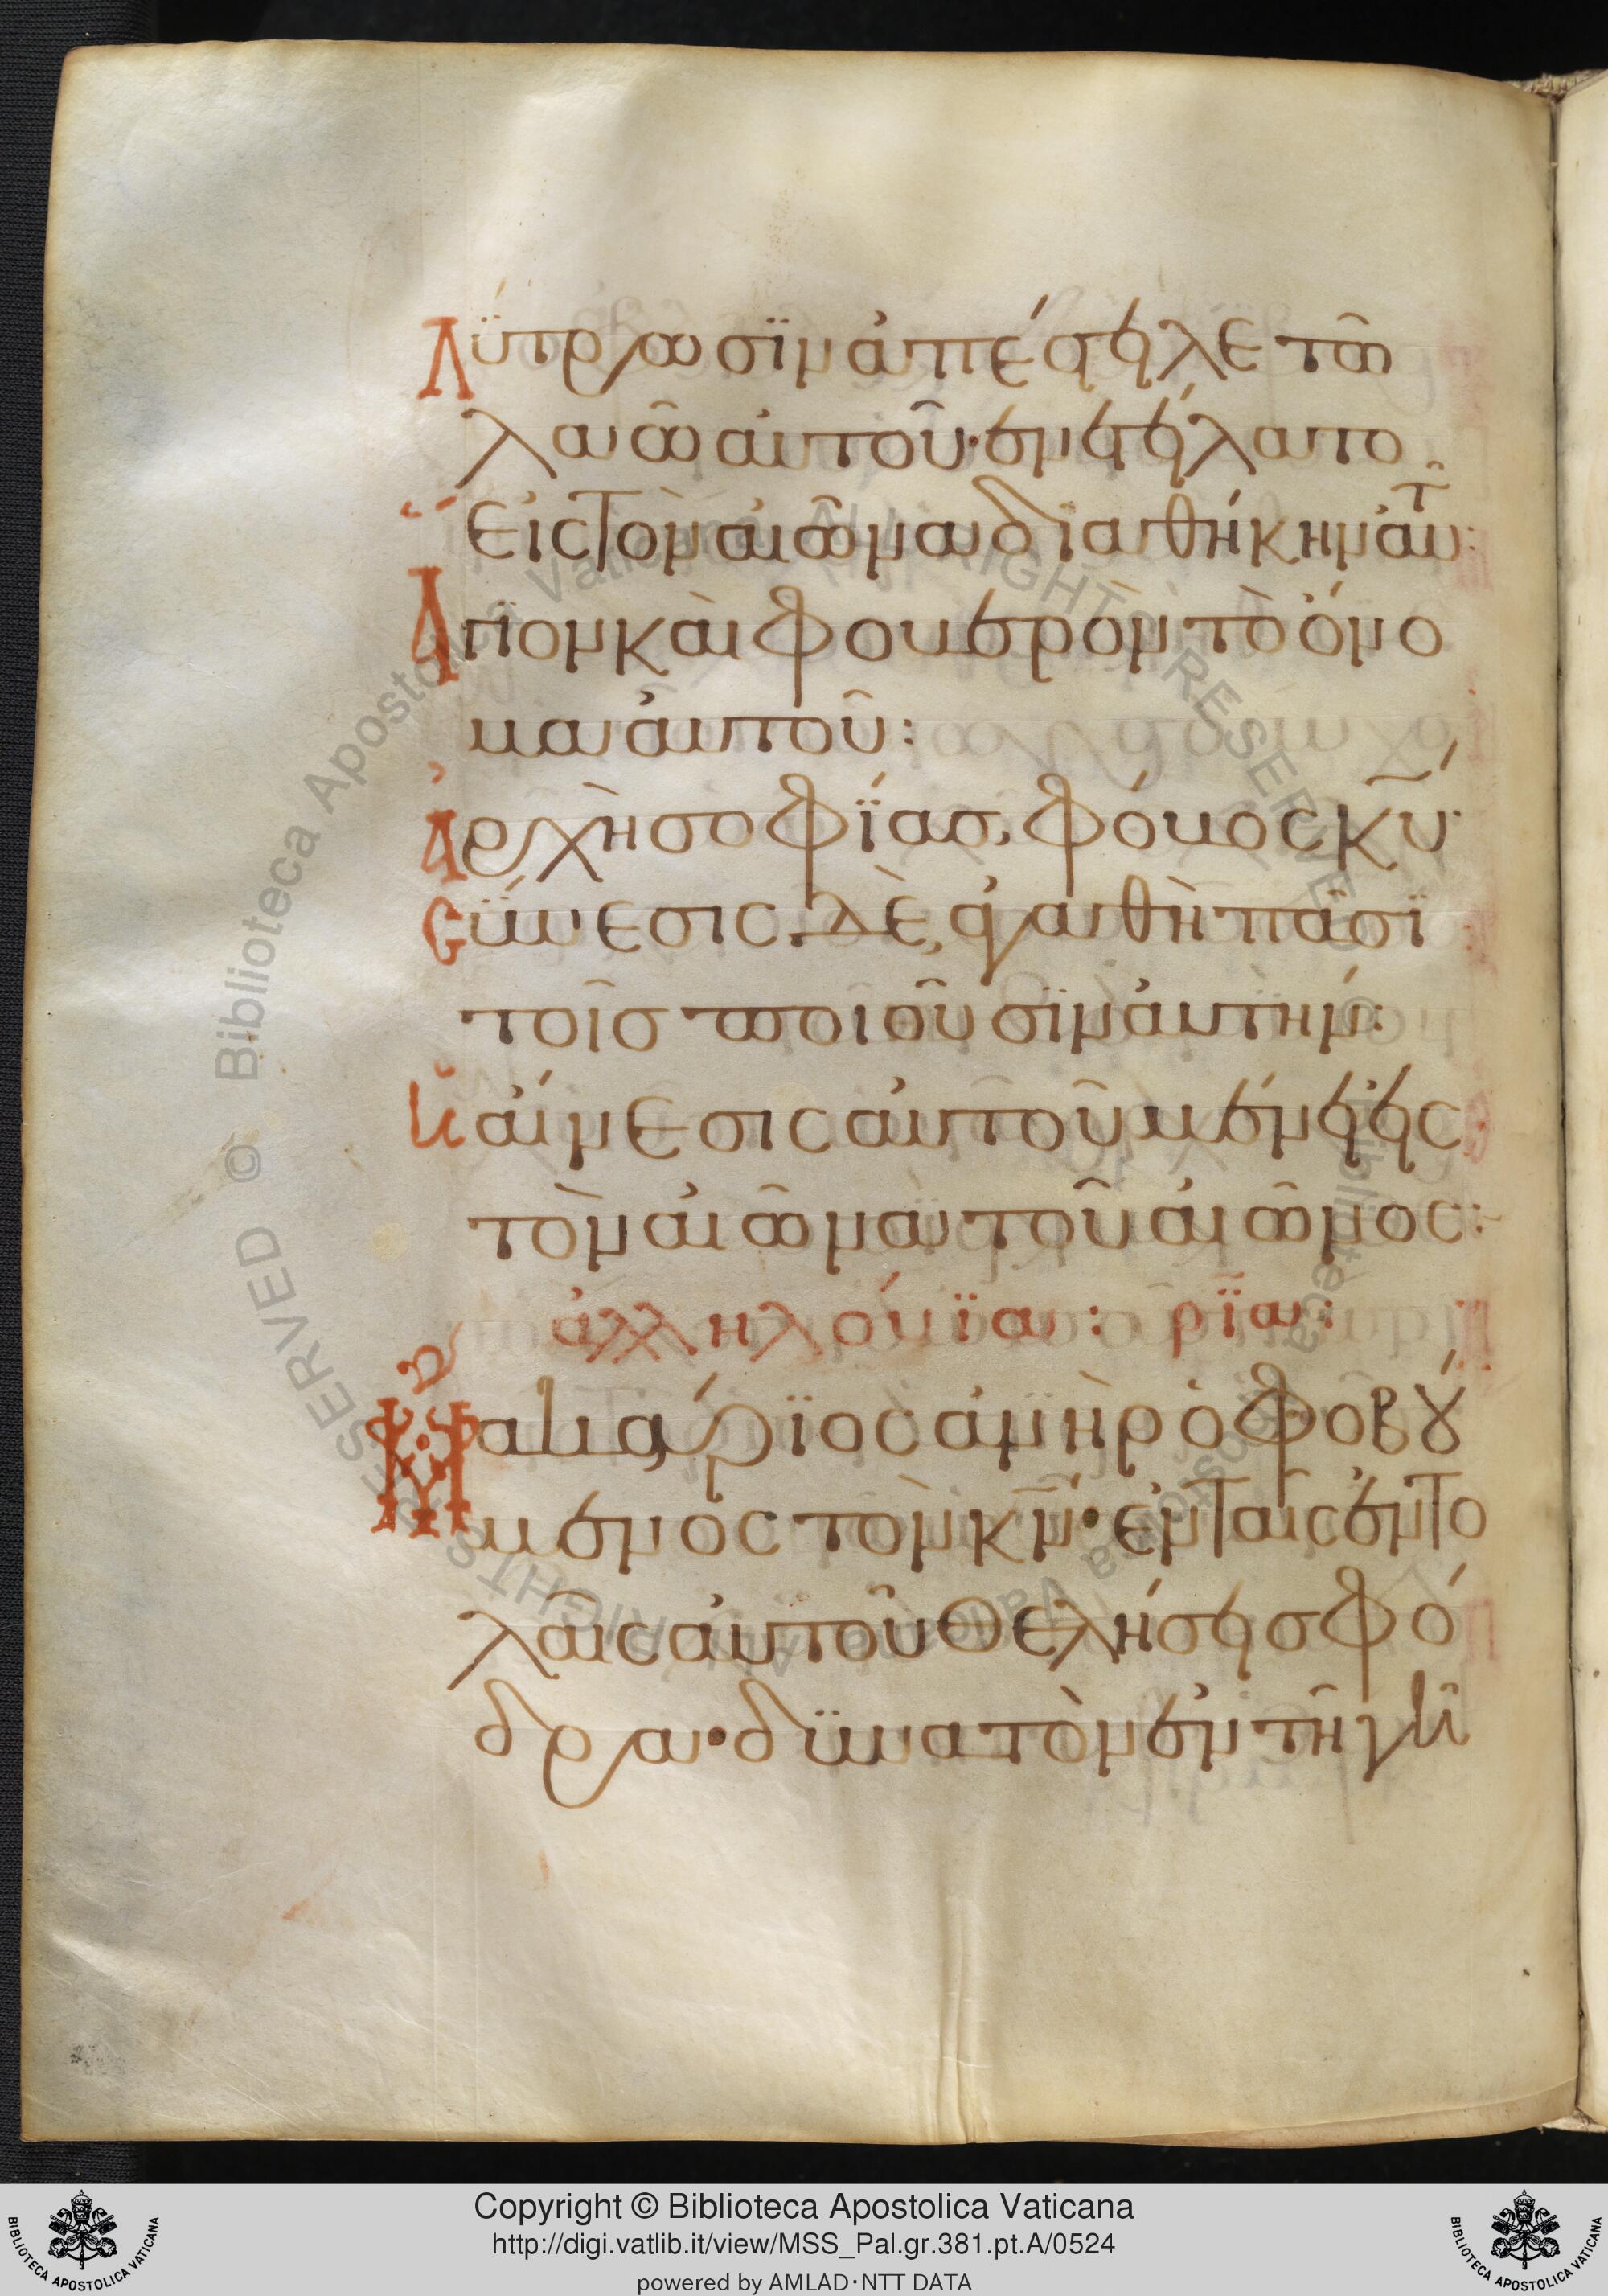 Λύτρωσϊν ἀπέστειλε τῶ
λαῶ αὐτοῦ· ἐνετείλατο
εἰς τὸν αἰῶνα διαθήκην ἀυτ͂:
Ἅγϊον καὶ φοβερὸν τὸ ὄνο
μα αὐτοῦ:
Ἀρχὴ σοφΐας, φόβος κ̅υ̅·
Σύνεσις δὲ, ἀγαθὴ πᾶσϊ
τοῖς ποιοῦσϊν ἀυτήν:
Ἡ αίνεσις αὐτοῦ μένει εἰς
τὸν αἰῶνα τοῦ αἰῶνος:
ἀλληλούϊα: ρϊα:
Μακάρϊος ἀνὴρ ὁ φοβού
μενος τὸν κ̅ν̅· ἐν ταῖς ἐντο
λαῖς αὐτοῦ θελήσει σφό
δρα· δυνατὸν ἐν τῆ γῆ
© Biblioteca Apostolica Vaticana ALL RIGHTS RESERVED
Copyright © Biblioteca Apostolica Vaticana
http://digi.vatlib.it/view/MSS_Pal.gr.381.pt.A/0524
powered by AMLAD·NTT DATA
BIBLIOTECA APOSTOLICA VATICANA
BIBLIOTECA APOSTOLICA VATICANA